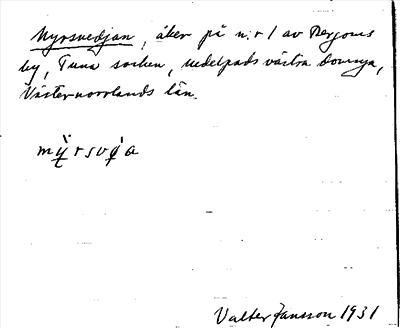 Myrsvedjan, åker på n:r 1 av Bergoms
by, Tuna socken, Medelpads västra domsaga,
Västernorrlands län.
Valter Jansson 1931